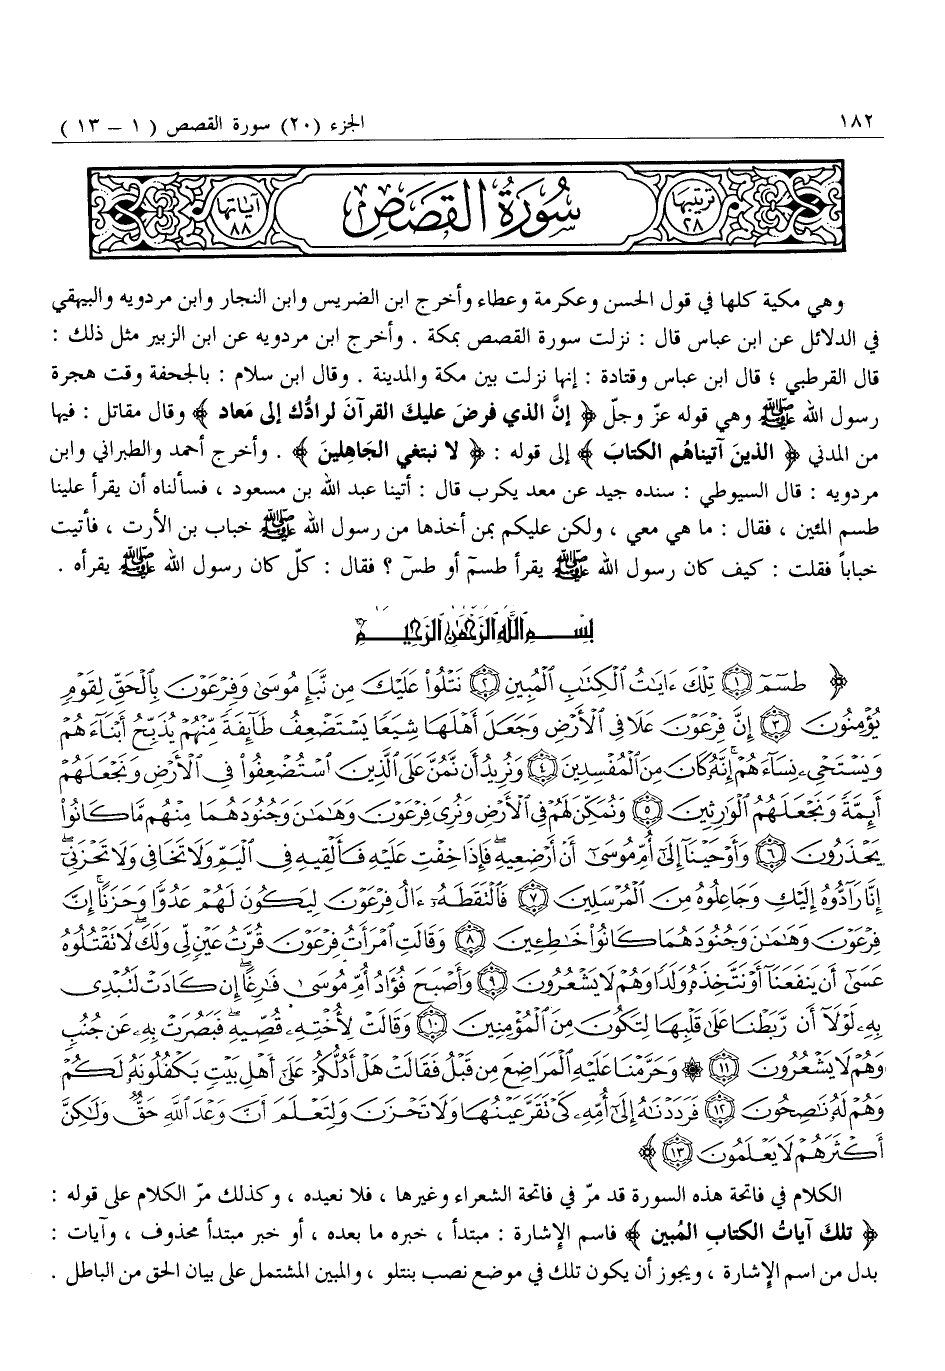 ١٨٢
الجزء (٢٠) سورة القصص (١ – ١٣)
ترتيبها ٢٨
سُورَةُ القَصَصِ
آياتها ٨٨
وهي مكية كلها في قول الحسن وعكرمة وعطاء وأخرج ابن الضريس وابن النجار وابن مردويه والبيهقي
في الدلائل عن ابن عباس قال : نزلت سورة القصص بمكة . وأخرج ابن مردويه عن ابن الزبير مثل ذلك :
قال القرطبي ؛ قال ابن عباس وقتادة : إنها نزلت بين مكة والمدينة . وقال ابن سلام : بالجحفة وقت هجرة
رسول الله ﷺ وهي قوله عزّ وجلّ ﴿ إنَّ الذي فرضَ عليكَ القرآنَ لرادُّك إلى مَعاد ﴾ وقال مقاتل : فيها
من المدني ﴿ الذينَ آتيناهُم الكتابَ ﴾ إلى قوله : ﴿ لا نبتغي الجَاهلينَ ﴾ . وأخرج أحمد والطبراني وابن
مردويه : قال السيوطي : سنده جيد عن معد يكرب قال : أتينا عبد الله بن مسعود ، فسألناه أن يقرأ علينا
طسم المئين ، فقال : ما هي معي ، ولكن عليكم بمن أخذها من رسول الله ﷺ خباب بن الأرت ، فأتيت
خباباً فقلت : كيف كان رسول الله ﷺ يقرأ طسمّ أو طسّ ؟ فقال : كلّ كان رسول الله ﷺ يقرأه .
بِسْمِ اللَّهِ الرَّحْمَٰنِ الرَّحِيمِ
﴿ طسٓمٓ ١ تِلْكَ ءَايَٰتُ ٱلْكِتَٰبِ ٱلْمُبِينِ ٢ نَتْلُوا۟ عَلَيْكَ مِن نَّبَإِ مُوسَىٰ وَفِرْعَوْنَ بِٱلْحَقِّ لِقَوْمٍ
يُؤْمِنُونَ ٣ إِنَّ فِرْعَوْنَ عَلَا فِى ٱلْأَرْضِ وَجَعَلَ أَهْلَهَا شِيَعًا يَسْتَضْعِفُ طَآئِفَةً مِّنْهُمْ يُذَبِّحُ أَبْنَآءَهُمْ
وَيَسْتَحْىِۦ نِسَآءَهُمْ إِنَّهُۥ كَانَ مِنَ ٱلْمُفْسِدِينَ ٤ وَنُرِيدُ أَن نَّمُنَّ عَلَى ٱلَّذِينَ ٱسْتُضْعِفُوا۟ فِى ٱلْأَرْضِ وَنَجْعَلَهُمْ
أَئِمَّةً وَنَجْعَلَهُمُ ٱلْوَٰرِثِينَ ٥ وَنُمَكِّنَ لَهُمْ فِى ٱلْأَرْضِ وَنُرِىَ فِرْعَوْنَ وَهَٰمَٰنَ وَجُنُودَهُمَا مِنْهُم مَّا كَانُوا۟
يَحْذَرُونَ ٦ وَأَوْحَيْنَآ إِلَىٰٓ أُمِّ مُوسَىٰٓ أَنْ أَرْضِعِيهِ فَإِذَا خِفْتِ عَلَيْهِ فَأَلْقِيهِ فِى ٱلْيَمِّ وَلَا تَخَافِى وَلَا تَحْزَنِىٓ
إِنَّا رَآدُّوهُ إِلَيْكِ وَجَاعِلُوهُ مِنَ ٱلْمُرْسَلِينَ ٧ فَٱلْتَقَطَهُۥٓ ءَالُ فِرْعَوْنَ لِيَكُونَ لَهُمْ عَدُوًّا وَحَزَنًا إِنَّ
فِرْعَوْنَ وَهَٰمَٰنَ وَجُنُودَهُمَا كَانُوا۟ خَٰطِـِٔينَ ٨ وَقَالَتِ ٱمْرَأَتُ فِرْعَوْنَ قُرَّتُ عَيْنٍ لِّى وَلَكَ لَا تَقْتُلُوهُ
عَسَىٰٓ أَن يَنفَعَنَآ أَوْ نَتَّخِذَهُۥ وَلَدًا وَهُمْ لَا يَشْعُرُونَ ٩ وَأَصْبَحَ فُؤَادُ أُمِّ مُوسَىٰ فَٰرِغًا إِن كَادَتْ لَتُبْدِى
بِهِۦ لَوْلَآ أَن رَّبَطْنَا عَلَىٰ قَلْبِهَا لِتَكُونَ مِنَ ٱلْمُؤْمِنِينَ ١٠ وَقَالَتْ لِأُخْتِهِۦ قُصِّيهِ فَبَصُرَتْ بِهِۦ عَن جُنُبٍ
وَهُمْ لَا يَشْعُرُونَ ١١ ۞ وَحَرَّمْنَا عَلَيْهِ ٱلْمَرَاضِعَ مِن قَبْلُ فَقَالَتْ هَلْ أَدُلُّكُمْ عَلَىٰٓ أَهْلِ بَيْتٍ يَكْفُلُونَهُۥ لَكُمْ
وَهُمْ لَهُۥ نَٰصِحُونَ ١٢ فَرَدَدْنَٰهُ إِلَىٰٓ أُمِّهِۦ كَىْ تَقَرَّ عَيْنُهَا وَلَا تَحْزَنَ وَلِتَعْلَمَ أَنَّ وَعْدَ ٱللَّهِ حَقٌّ وَلَٰكِنَّ
أَكْثَرَهُمْ لَا يَعْلَمُونَ ١٣ ﴾
الكلام في فاتحة هذه السورة قد مرّ في فاتحة الشعراء وغيرها ، فلا نعيده ، وكذلك مرّ الكلام على قوله :
﴿ تلكَ آياتُ الكتابِ المُبين ﴾ فاسم الإشارة : مبتدأ ، خبره ما بعده ، أو خبر مبتدأ محذوف ، وآيات :
بدل من اسم الإشارة ، ويجوز أن يكون تلك في موضع نصب بنتلو ، والمبين المشتمل على بيان الحق من الباطل .